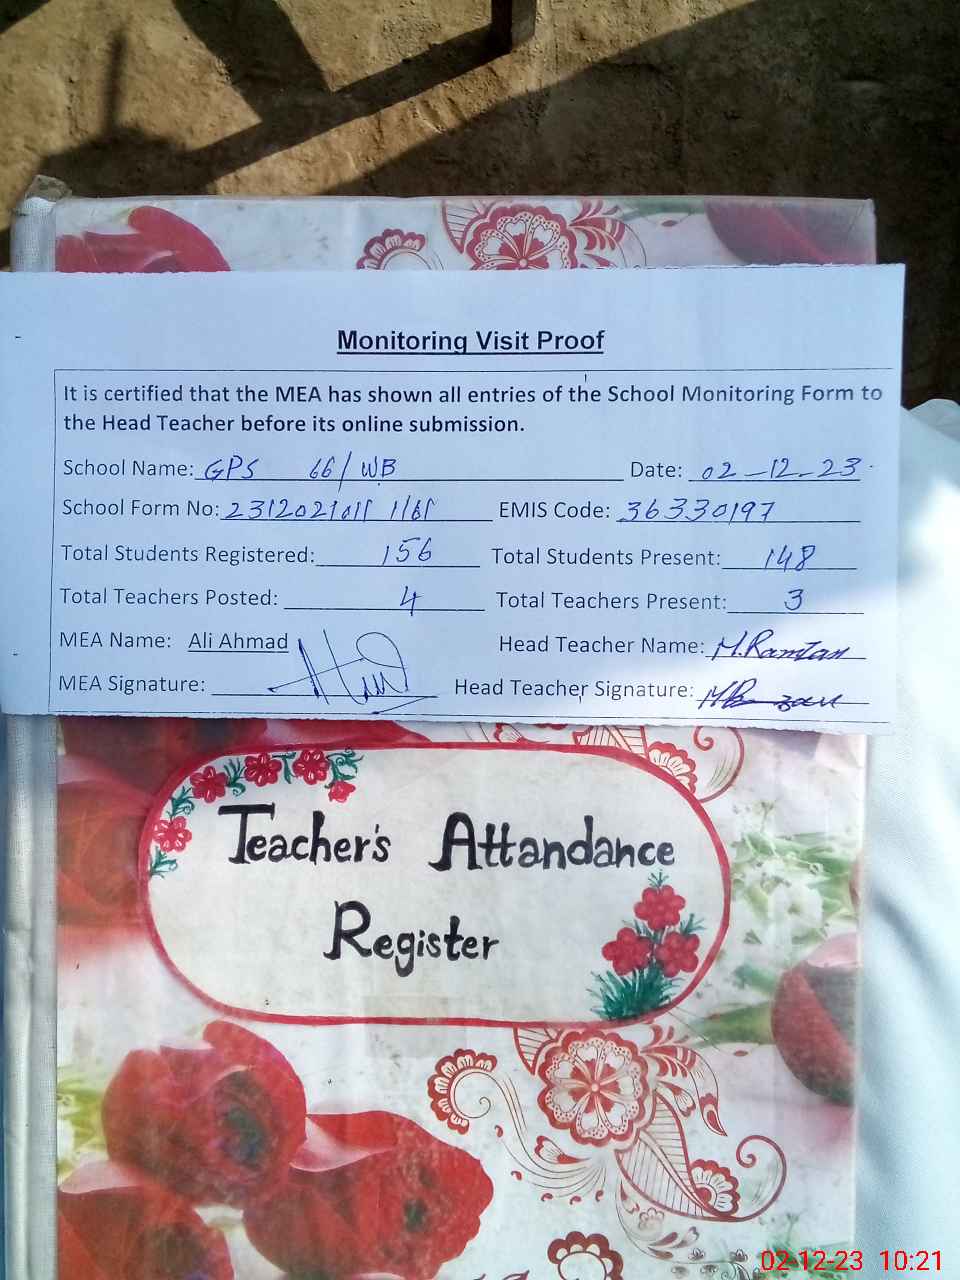 Monitoring Visit Proof
It is certified that the MEA has shown all entries of the School Monitoring Form to
the Head Teacher before its online submission.
School Name: GPS 66/WB Date: 02-12-23
School Form No: EMIS Code: 36330197
Total Students Registered: 156 Total Students Present: 148
Total Teachers Posted: 4 Total Teachers Present: 3
MEA Name: Ali Ahmad Head Teacher Name: M.Ramzan
MEA Signature: Head Teacher Signature:
Teacher's Attandance
Register
02-12-23 10:21